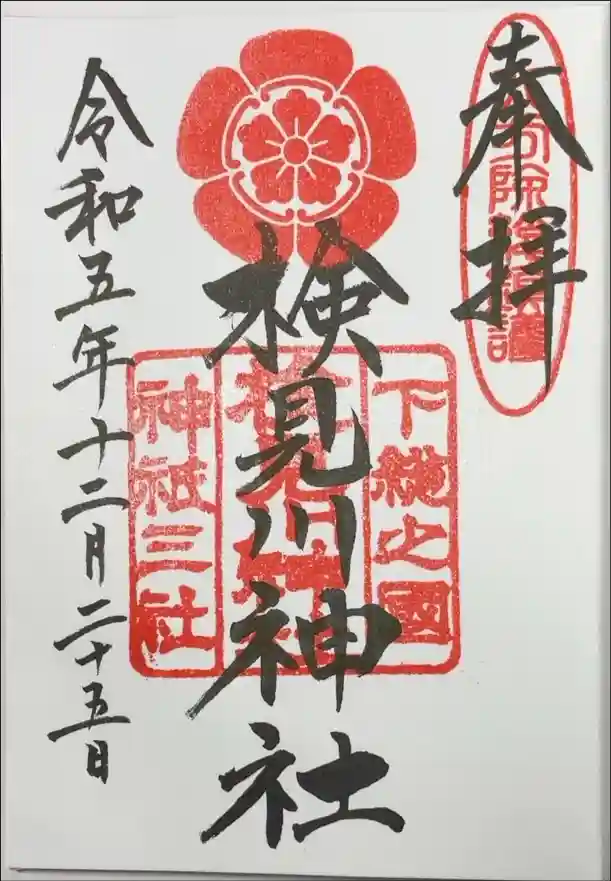 奉拝
下総之國
検見川神社
神祇三社
令和五年十二月二十五日